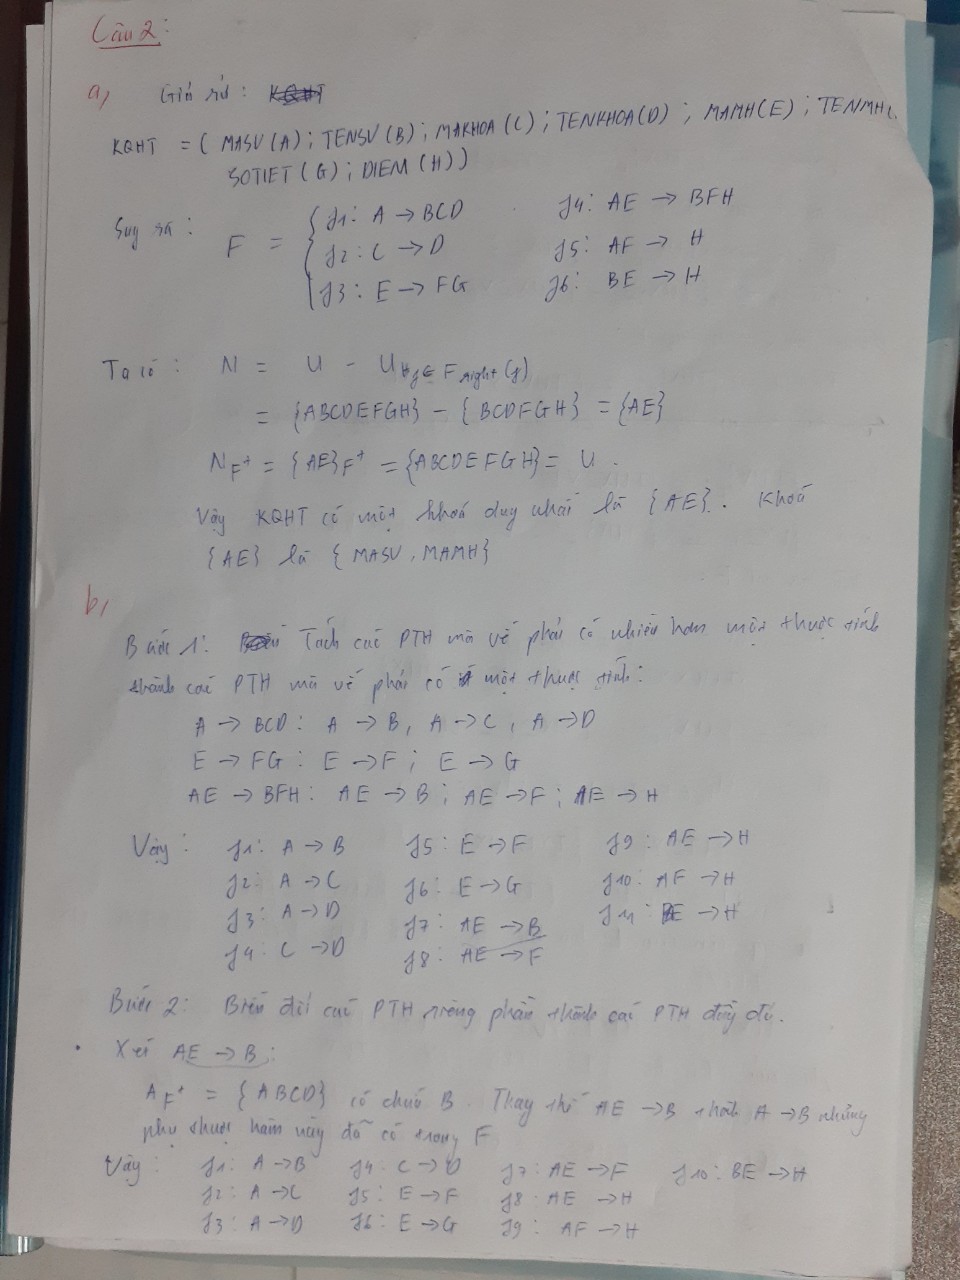 Câu 2:
a, Giả sử: KQHT
KQHT = ( MASV (A) ; TENSV (B) ; MAKHOA (C) ; TENKHOA(D) ; MAMH(E) ; TENMH(
SOTIET (G) ; DIEM (H))
Suy ra : F = { f1: A → BCD f4: AE → BFH
f2: C → D f5: AF → H
f3: E → FG f6: BE → H
Ta có : N = U - U∀f∈F right (f)
= {ABCDEFGH} - { BCDFGH } = {AE}
NF+ = {AE}F+ = {ABCDEFGH} = U .
Vậy KQHT có một khoá duy nhất là {AE}. Khoá
{AE} là { MASV, MAMH}
b,
Bước 1: Tách các PTH mà vế phải có nhiều hơn một thuộc tính
thành các PTH mà vế phải có một thuộc tính :
A → BCD : A → B, A → C, A → D
E → FG : E → F ; E → G
AE → BFH : AE → B ; AE → F ; AE → H
Vậy : f1: A → B f5: E → F f9: AE → H
f2: A → C f6: E → G f10: AF → H
f3: A → D f7: AE → B f11: BE → H
f4: C → D f8: AE → F
Bước 2: Biến đổi các PTH riêng phần thành các PTH đầy đủ.
• Xét AE → B :
AF+ = { ABCD} có chứa B. Thay thế AE → B thành A → B nhưng
phụ thuộc hàm này đã có trong F
Vậy : f1: A → B f4: C → D f7: AE → F f10: BE → H
f2: A → C f5: E → F f8: AE → H
f3: A → D f6: E → G f9: AF → H